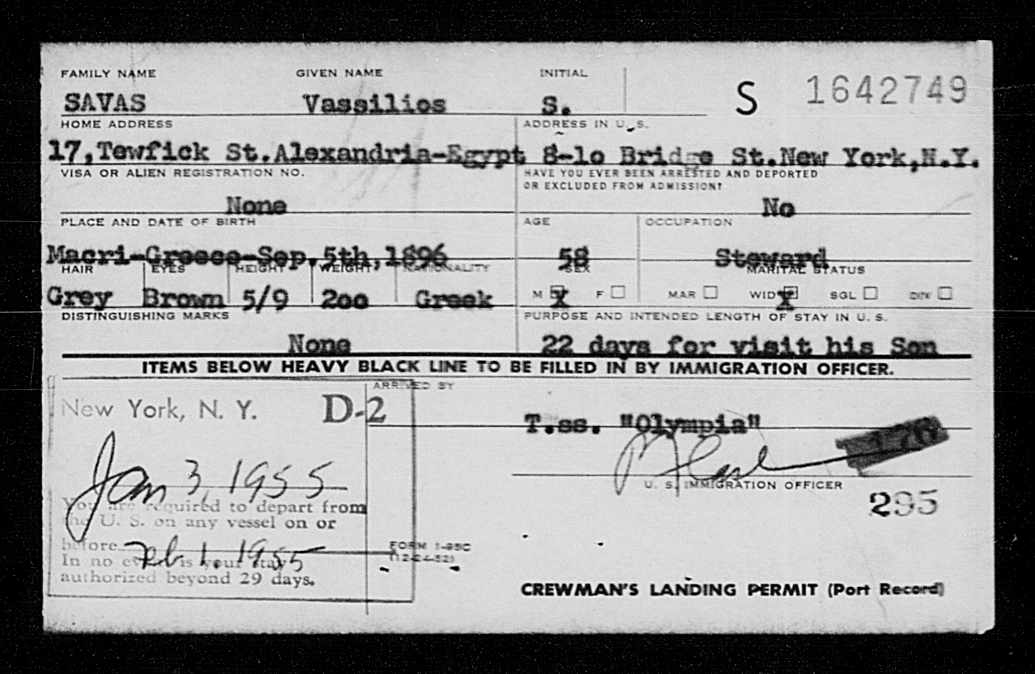 FAMILY NAME GIVEN NAME INITIAL
SAVAS Vassilios S. S 1642749
HOME ADDRESS ADDRESS IN U.S.
17,Tewfick St.Alexandria-Egypt 8-lo Bridge St.New York,N.Y.
VISA OR ALIEN REGISTRATION NO. HAVE YOU EVER BEEN ARRESTED AND DEPORTED
OR EXCLUDED FROM ADMISSION?
None No
PLACE AND DATE OF BIRTH AGE OCCUPATION
Macri-Greece-Sep.5th,1896 58 Steward
HAIR EYES HEIGHT WEIGHT NATIONALITY SEX MARITAL STATUS
Grey Brown 5/9 2oo Greek M X F MAR WID X SGL DIV
DISTINGUISHING MARKS PURPOSE AND INTENDED LENGTH OF STAY IN U. S.
None 22 days for visit his Son
ITEMS BELOW HEAVY BLACK LINE TO BE FILLED IN BY IMMIGRATION OFFICER.
ARRIVED BY
New York, N. Y. D-2
T.ss. "Olympia"
176
Jan 3, 1955
U. S. IMMIGRATION OFFICER
295
You are required to depart from
the U. S. on any vessel on or
before Feb 1, 1955
In no event is your stay
authorized beyond 29 days.
FORM I-95C
(12-24-52)
CREWMAN'S LANDING PERMIT (Port Record)